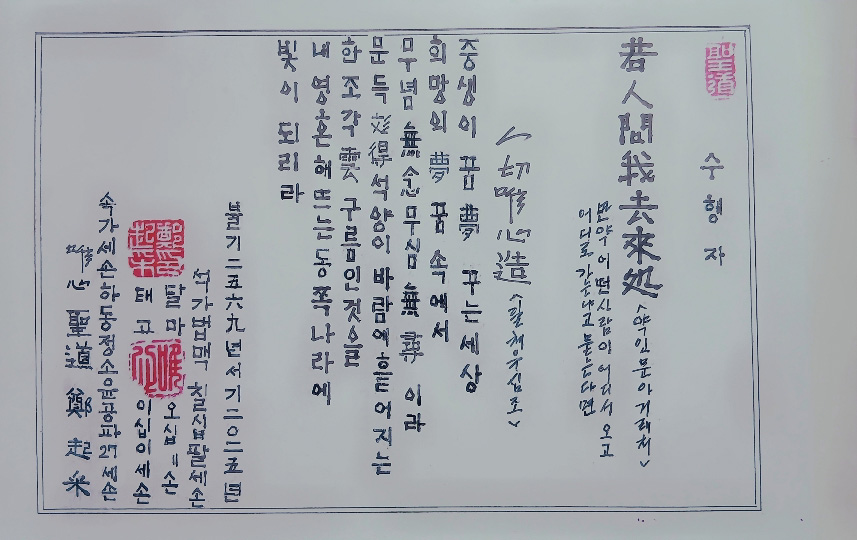 聖道
수형자
若人問我去來処<약인문아거래처>
만약 어떤사람이 어디서 오고
어디로 가는냐고 묻는다면
一切唯心造 <일체유심조>
중생이 꿈夢 꾸는세상
희망의 夢 꿈 속에서
무념 無念 무심 無 이라
문득 得 석양이 바람에 흩어지는
한조각 雲 구름인것을
내 영혼 해뜨는 동쪽나라에
빛이 되리라
불기二五六九년 서기二〇二五년
석가법맥 칠십팔세손
달마 오십 손
태고 이십이세손
속가세손하동정소윤공파27세손
唯心 聖道 鄭起米